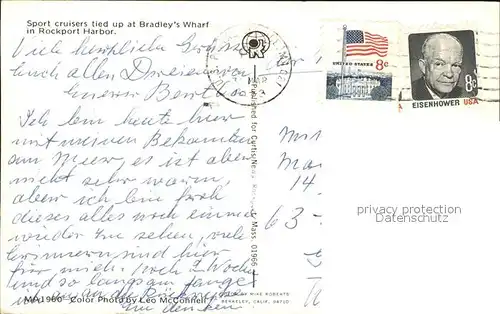 Sport cruisers tied up at Bradley's Wharf
in Rockport Harbor.
Viele herzliche Grüsse
Euch allen Dreien von
Eurer
Ich bin heute hier
mit meinen Bekannten
am Meer, es ist aber
nicht sehr warm,
aber ich bin froh
dieses alles noch einmal
wieder zu sehen, viele
Erinnerungen sind hier
für mich. Noch 2 Woche
und so langsam fange
ich an an die
zu denken
MA1900 Color Photo by Leo McConnell
Published for Curtis News
Mass 01966
BY MIKE ROBERTS
BERKELEY, CALIF. 94710
UNITED STATES 8c
8c
EISENHOWER USA
MAR
Ma
14
63-
privacy protection
Datenschutz